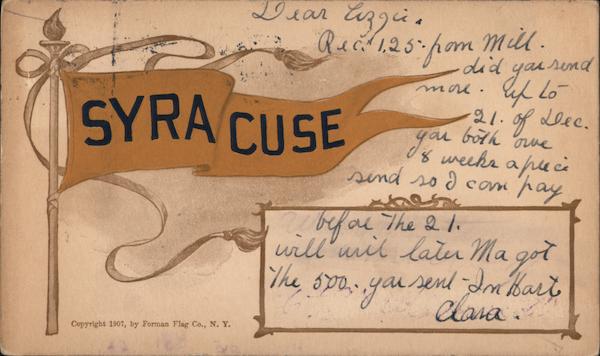 Dear Lizzie.
Rec. 1.25 from Mill.
did you send
more. up to
21. of Dec.
you both owe
8 weeks apiece
send so I can pay
before the 21.
will writ later Ma got
the 500. you sent - In Hast
Clara.
SYRACUSE
Copyright 1907, by Forman Flag Co., N. Y.